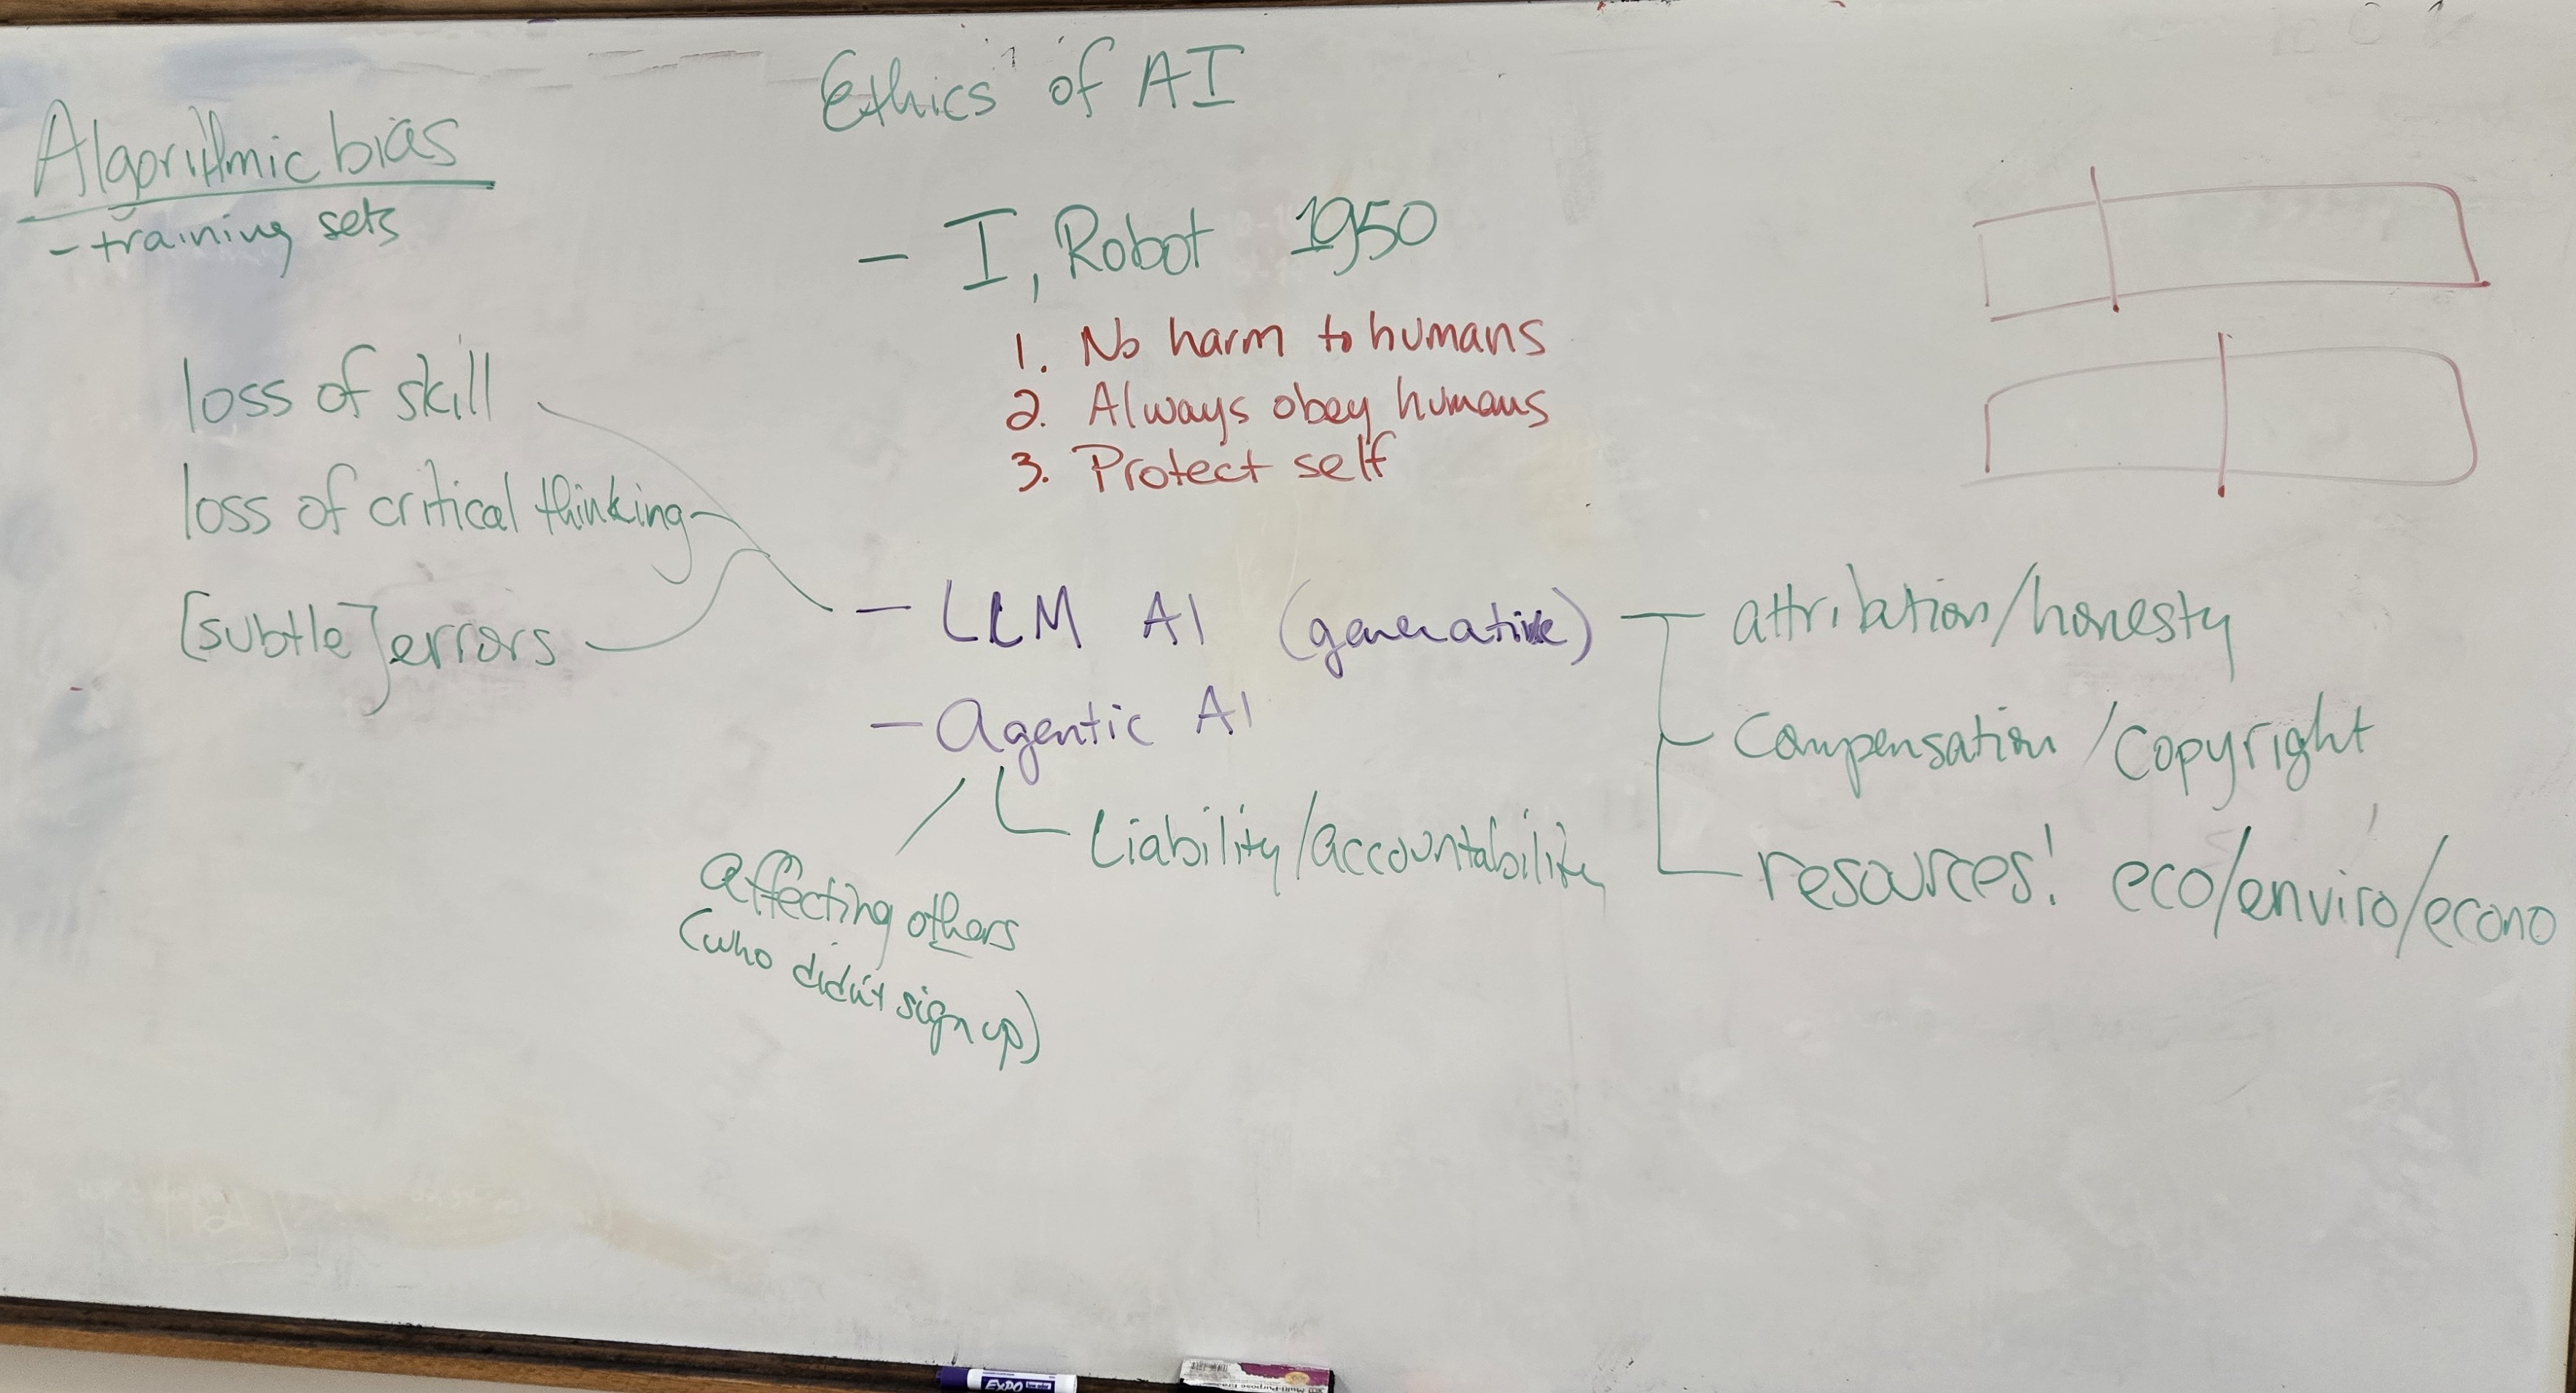 Ethics of AI
Algorithmic bias
- training sets
- I, Robot 1950
1. No harm to humans
2. Always obey humans
3. Protect self
loss of skill
loss of critical thinking
[subtle] errors
- LLM AI (generative)
attribution/honesty
Compensation/Copyright
resources! eco/enviro/econo
- Agentic AI
Liability/accountability
affecting others
(who didn't sign up)
EXPO